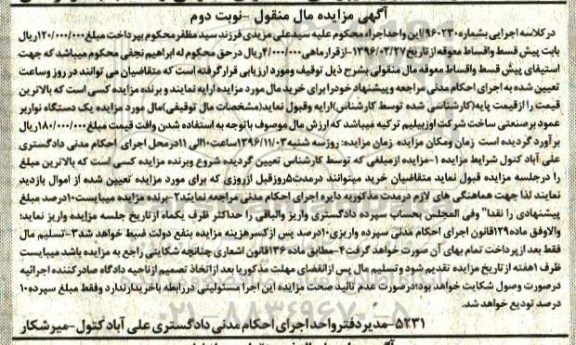 آگهی مزایده مال منقول -نوبت دوم
در کلاسه اجرایی بشماره ۹۶۰۲۳۰/ این واحد اجراء محکوم علیه سید علی مزیدی فرزند سید مظفر محکوم بپرداخت مبلغ ۱۲۰/۰۰۰/۰۰۰ ریال
بابت پیش قسط واقساط معوقه از تاریخ ۱۳۹۶/۰۲/۲۷-از قرار ماهی ۴/۰۰۰/۰۰۰ ریال در حق محکوم له ابراهیم نجفی محکوم میباشد که جهت
استیفای پیش قسط واقساط معوقه مال منقولی بشرح ذیل توقیف ومورد ارزیابی قرار گرفته است که متقاضیان می توانند در روز وساعت
تعیین شده به اجرای احکام مدنی مراجعه وپیشنهاد خود را برای خرید مال مورد مزایده ارایه نمایند و برنده مزایده کسی است که بالاترین
قیمت را از قیمت پایه(کارشناسی شده توسط کارشناس)ارایه وقبول نماید(مشخصات مال توقیفی)مال مورد مزایده یک دستگاه نواربر
عمود بر صنعتی ساخت شرکت اوزبیلیم ترکیه میباشد که ارزش مال موصوف با توجه به استفاده شدن وافت قیمت مبلغ ۱۸۰/۰۰۰/۰۰۰ ریال
برآورد گردیده است زمان ومکان مزایده: زمان مزایده: روز سه شنبه ۱۳۹۶/۱۱/۰۳ ساعت ۱۰ الی ۱۱ در محل اجرای احکام مدنی دادگستری
علی آباد کتول شرایط مزایده ۱-مزایده از مبلغی که توسط کارشناس تعیین گردیده شروع وبرنده مزایده کسی است که بالاترین مبلغ
را در جلسه مزایده قبول نماید متقاضیان خرید میتوانند در مدت ۵ روز قبل از روزی که برای مورد مزایده تعیین شده از اموال بازدید
نمایند لذا جهت هماهنگی های لازم در مدت مذکور به دایره اجرای احکام مدنی مراجعه نمایند ۲-برنده مزایده میبایست ۱۰ درصد مبلغ
پیشنهادی را نقدا" وفی المجلس بحساب سپرده دادگستری واریز والباقی را حداکثر ظرف یکماه از تاریخ جلسه مزایده واریز نماید؛
والاوفق ماده ۱۲۹ قانون اجرای احکام مدنی سپرده واریزی ۱۰ درصد پس از کسر هزینه مزایده بنفع دولت ضبط خواهد شد ۳-تسلیم مال
فقط بعد از پرداخت تمام بهای آن صورت خواهد گرفت ۴-مطابق ماده ۱۳۶ قانون اشعاری چنانچه شکایتی راجع به مزایده باشد میبایست
ظرف ۱ هفته از تاریخ مزایده تقدیم شود وتسلیم مال پس از انقضای مهلت مذکور یا بعد از اتخاذ تصمیم از ناحیه دادگاه صادر کننده اجرائیه
در صورت وصول شکایت خواهد بود؛در صورت عدم تائید صحت مزایده این اجرا مسئولیتی در رابطه با خریدار ندارد وفقط مبلغ سپرده ۱۰
درصد تودیع خواهد شد.
۵۲۳۱-مدیر دفتر واحد اجرای احکام مدنی دادگستری علی آباد کتول-میرشکار
۰۲۱-۸۸۳۴۹۶۷۰-۵